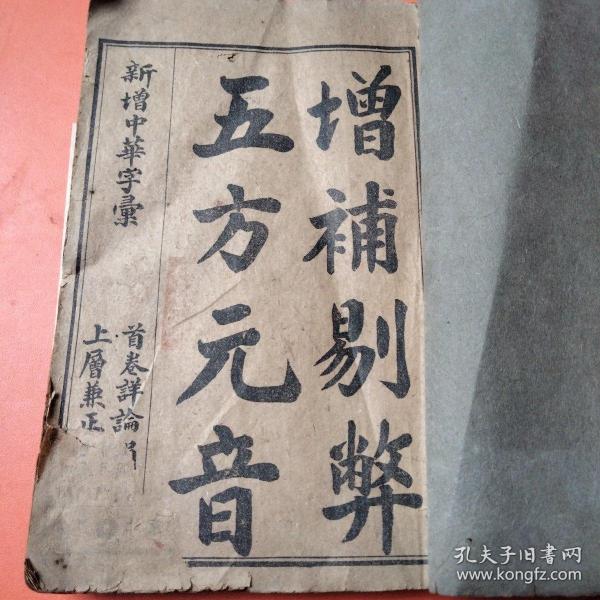 增補剔弊
五方元音
新增中華字彙
首卷詳論
上層兼正
孔夫子旧书网
www.kongfz.com